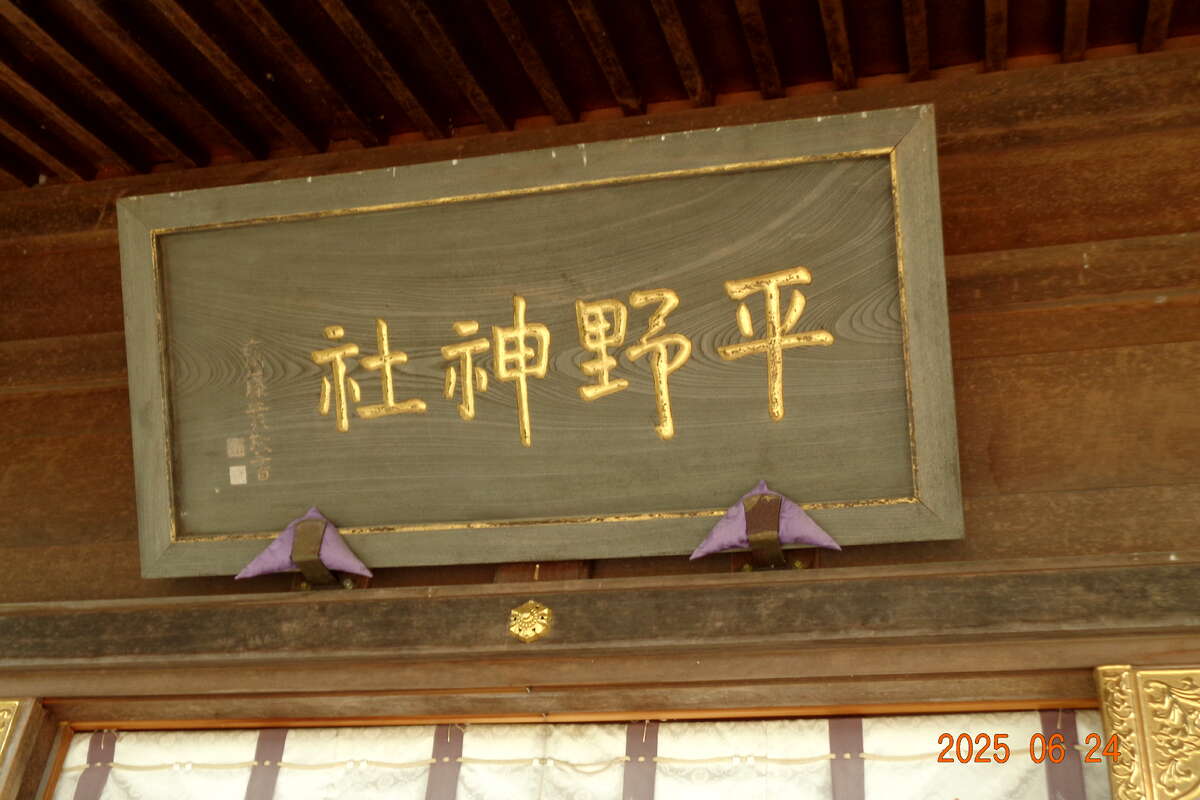 平野神社
2025 06 24